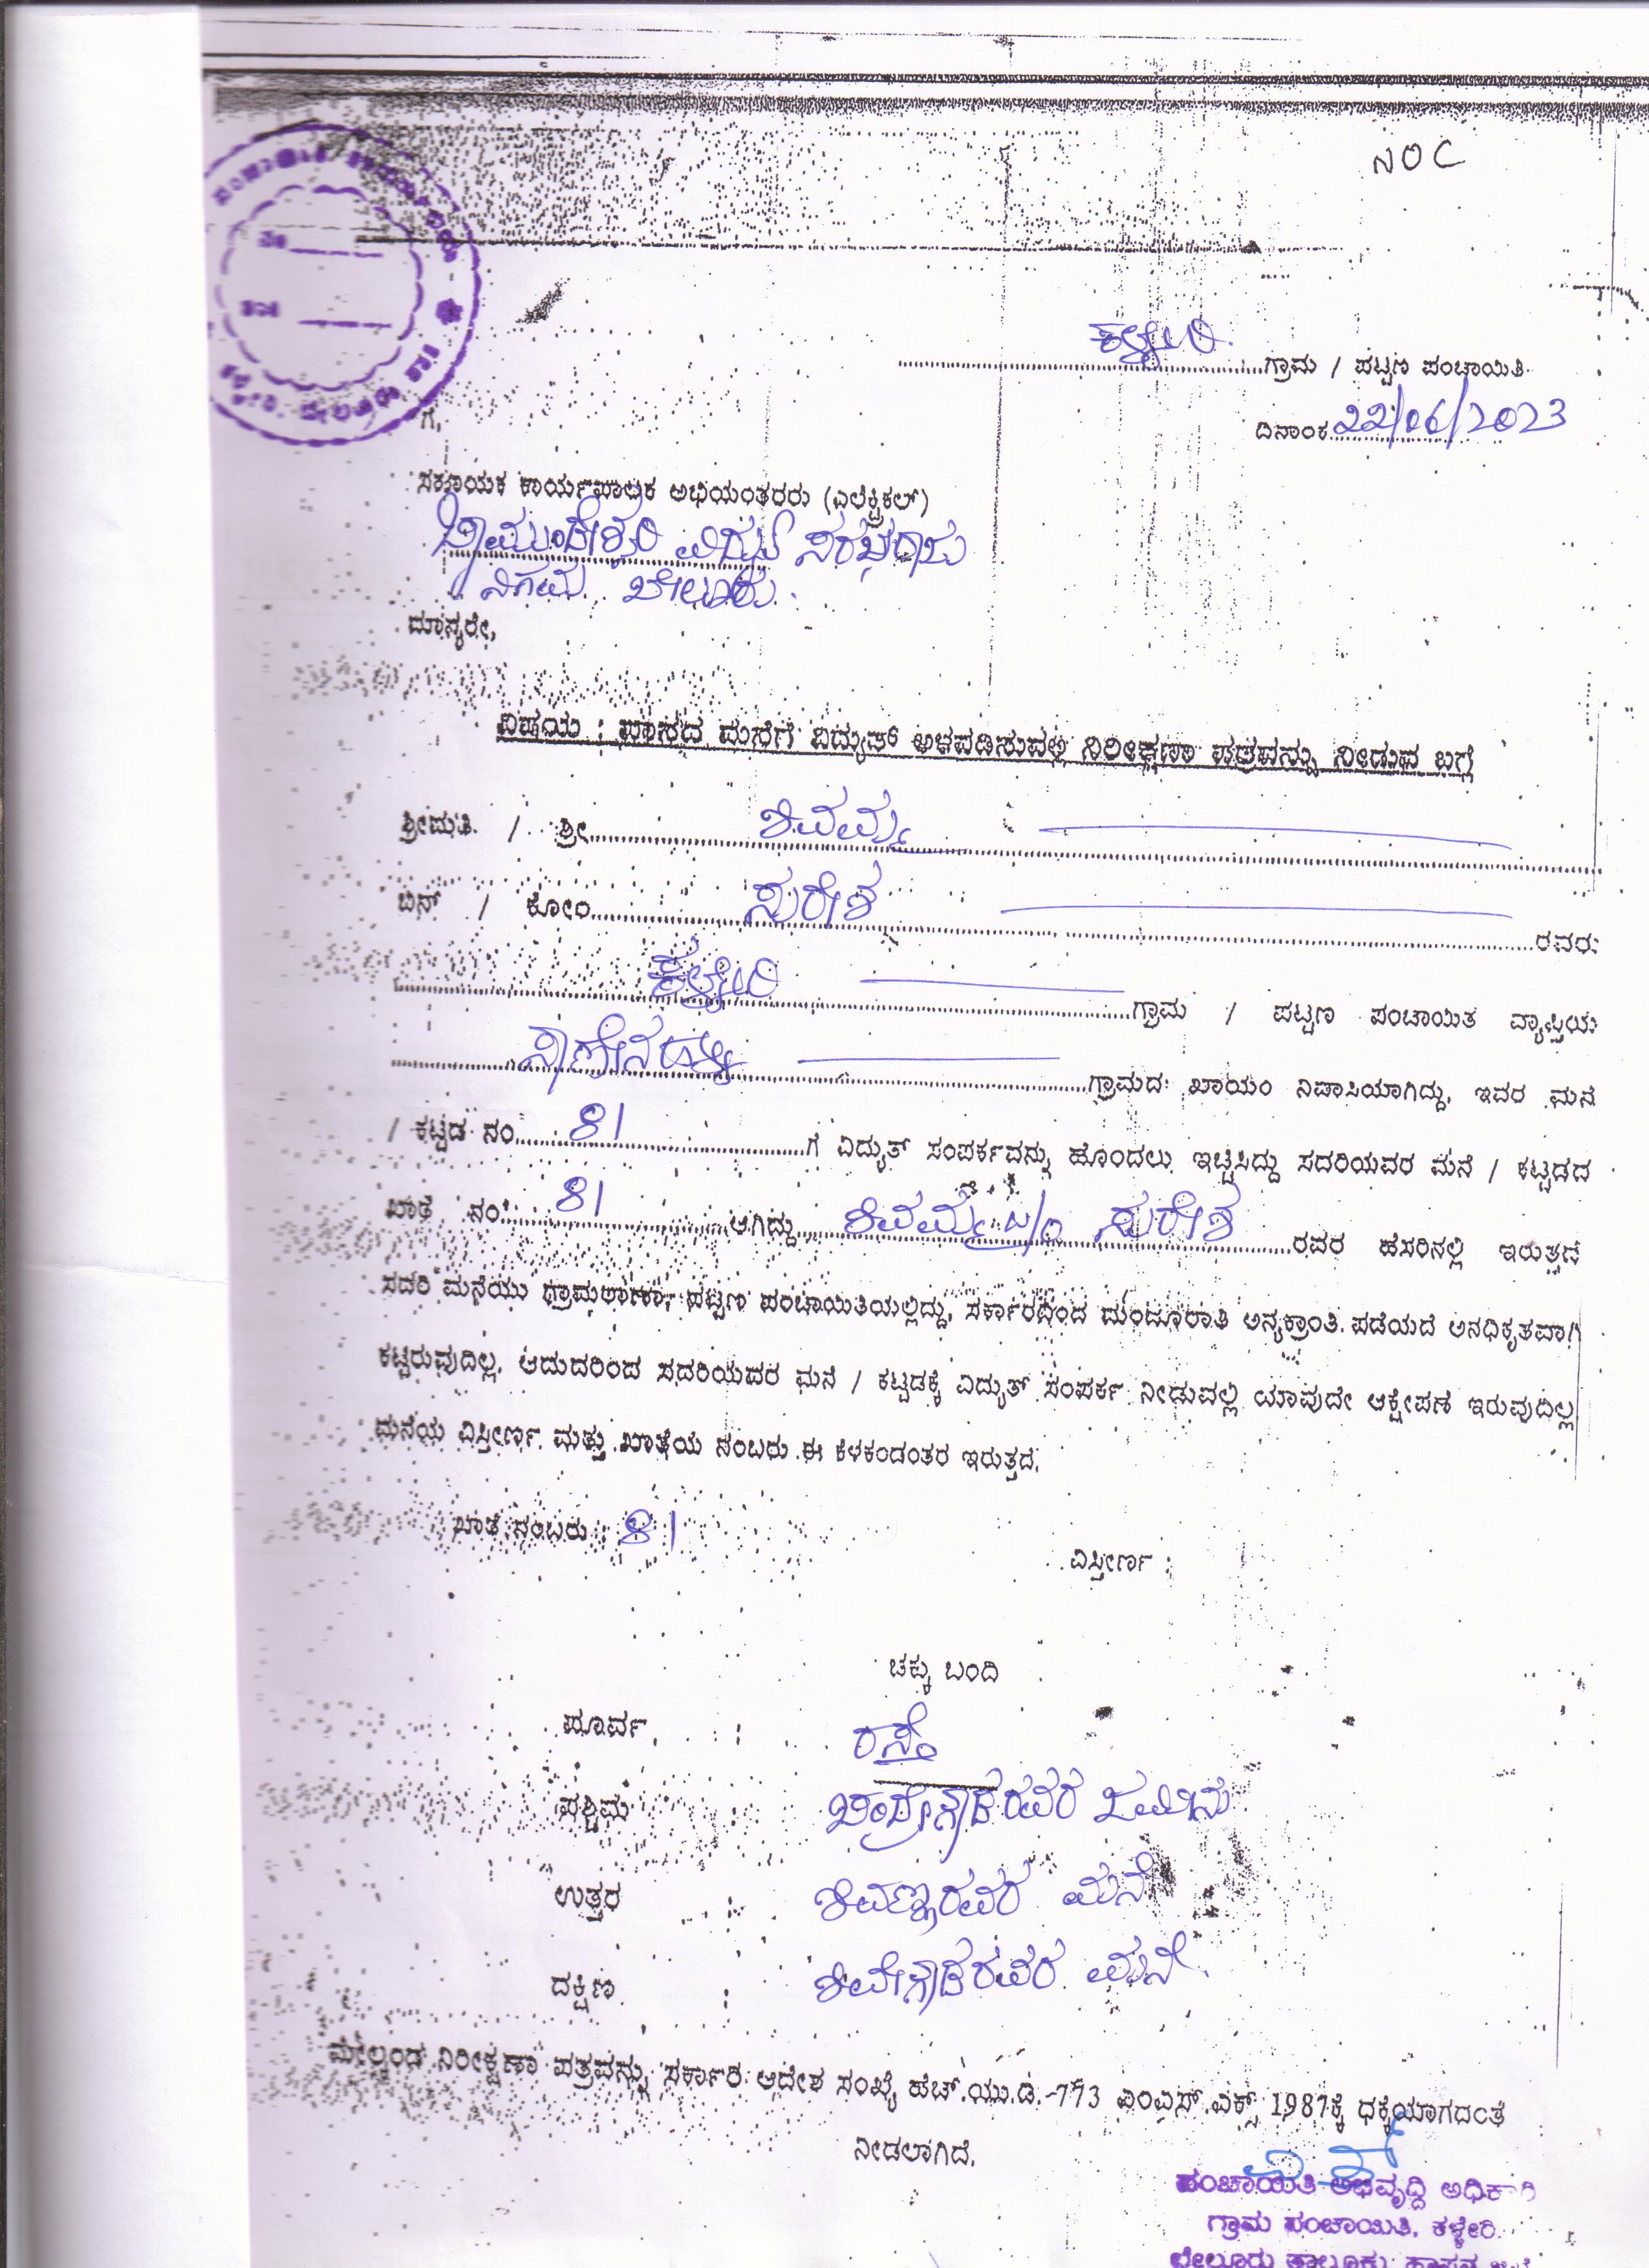 NOC
ಕಳ್ಳೇರಿ ಗ್ರಾಮ / ಪಟ್ಟಣ ಪಂಚಾಯಿತಿ
ದಿನಾಂಕ 22/06/2023
ಗೆ,
ಸಹಾಯಕ ಕಾರ್ಯಪಾಲಕ ಅಭಿಯಂತರರು (ಎಲೆಕ್ಟ್ರಿಕಲ್)
ಚಾಮುಂಡೇಶ್ವರಿ ವಿದ್ಯುತ್ ಸರಬರಾಜು
ನಿಗಮ ಬೇಲೂರು.
ಮಾನ್ಯರೇ,
ವಿಷಯ : ವಾಸದ ಮನೆಗೆ ವಿದ್ಯುತ್ ಅಳವಡಿಸುವಲ್ಲಿ ನಿರೀಕ್ಷಣಾ ಪತ್ರವನ್ನು ನೀಡುವ ಬಗ್ಗೆ
ಶ್ರೀಮತಿ / ಶ್ರೀ ಶಿವಮ್ಮ
ಬಿನ್ / ಕೋಂ ಸುರೇಶ ರವರು
ಕಳ್ಳೇರಿ ಗ್ರಾಮ / ಪಟ್ಟಣ ಪಂಚಾಯಿತಿ ವ್ಯಾಪ್ತಿಯ
ಗ್ರಾಮದ ಖಾಯಂ ನಿವಾಸಿಯಾಗಿದ್ದು, ಇವರ ಮನೆ
/ ಕಟ್ಟಡ ನಂ 81 ಗೆ ವಿದ್ಯುತ್ ಸಂಪರ್ಕವನ್ನು ಹೊಂದಲು ಇಚ್ಚಿಸಿದ್ದು ಸದರಿಯವರ ಮನೆ / ಕಟ್ಟಡದ
ಖಾತೆ ನಂ 81 ಆಗಿದ್ದು ಶಿವಮ್ಮ w/o ಸುರೇಶ ರವರ ಹೆಸರಿನಲ್ಲಿ ಇರುತ್ತದೆ
ಸದರಿ ಮನೆಯು ಗ್ರಾಮಠಾಣಾ, ಪಟ್ಟಣ ಪಂಚಾಯಿತಿಯಲ್ಲಿದ್ದು, ಸರ್ಕಾರದಿಂದ ಮಂಜೂರಾತಿ ಅನ್ಯಕ್ರಾಂತಿ ಪಡೆಯದೆ ಅನಧಿಕೃತವಾಗಿ
ಕಟ್ಟಿರುವುದಿಲ್ಲ. ಆದುದರಿಂದ ಸದರಿಯವರ ಮನೆ / ಕಟ್ಟಡಕ್ಕೆ ವಿದ್ಯುತ್ ಸಂಪರ್ಕ ನೀಡುವಲ್ಲಿ ಯಾವುದೇ ಆಕ್ಷೇಪಣೆ ಇರುವುದಿಲ್ಲ
ಮನೆಯ ವಿಸ್ತೀರ್ಣ ಮತ್ತು ಖಾತೆಯ ನಂಬರು ಈ ಕೆಳಕಂಡಂತರ ಇರುತ್ತದೆ.
ಖಾತೆ ನಂಬರು : 81
ವಿಸ್ತೀರ್ಣ :
ಚಕ್ಕು ಬಂದಿ
ಪೂರ್ವ : ರಸ್ತೆ
ಪಶ್ಚಿಮ ಚಂದ್ರೇಗೌಡರವರ ಜಮೀನು
ಉತ್ತರ : ಶಿವಣ್ಣರವರ ಮನೆ
ದಕ್ಷಿಣ : ಶಿವೇಗೌಡರವರ ಮನೆ.
ಮೇಲ್ಕಂಡ ನಿರೀಕ್ಷಣಾ ಪತ್ರವನ್ನು ಸರ್ಕಾರಿ ಆದೇಶ ಸಂಖ್ಯೆ ಹೆಚ್.ಯು.ಡಿ.-773 ಎಂಎಸ್.ಎಕ್ಸ್ 1987ಕ್ಕೆ ಧಕ್ಕೆಯಾಗದಂತೆ
ನೀಡಲಾಗಿದೆ.
ಪಂಚಾಯಿತಿ ಅಭಿವೃದ್ಧಿ ಅಧಿಕಾರಿ
ಗ್ರಾಮ ಪಂಚಾಯಿತಿ, ಕಳ್ಳೇರಿ.
ಬೇಲೂರು ತಾಲ್ಲೂಕು, ಹಾಸನ ಜಿಲ್ಲೆ